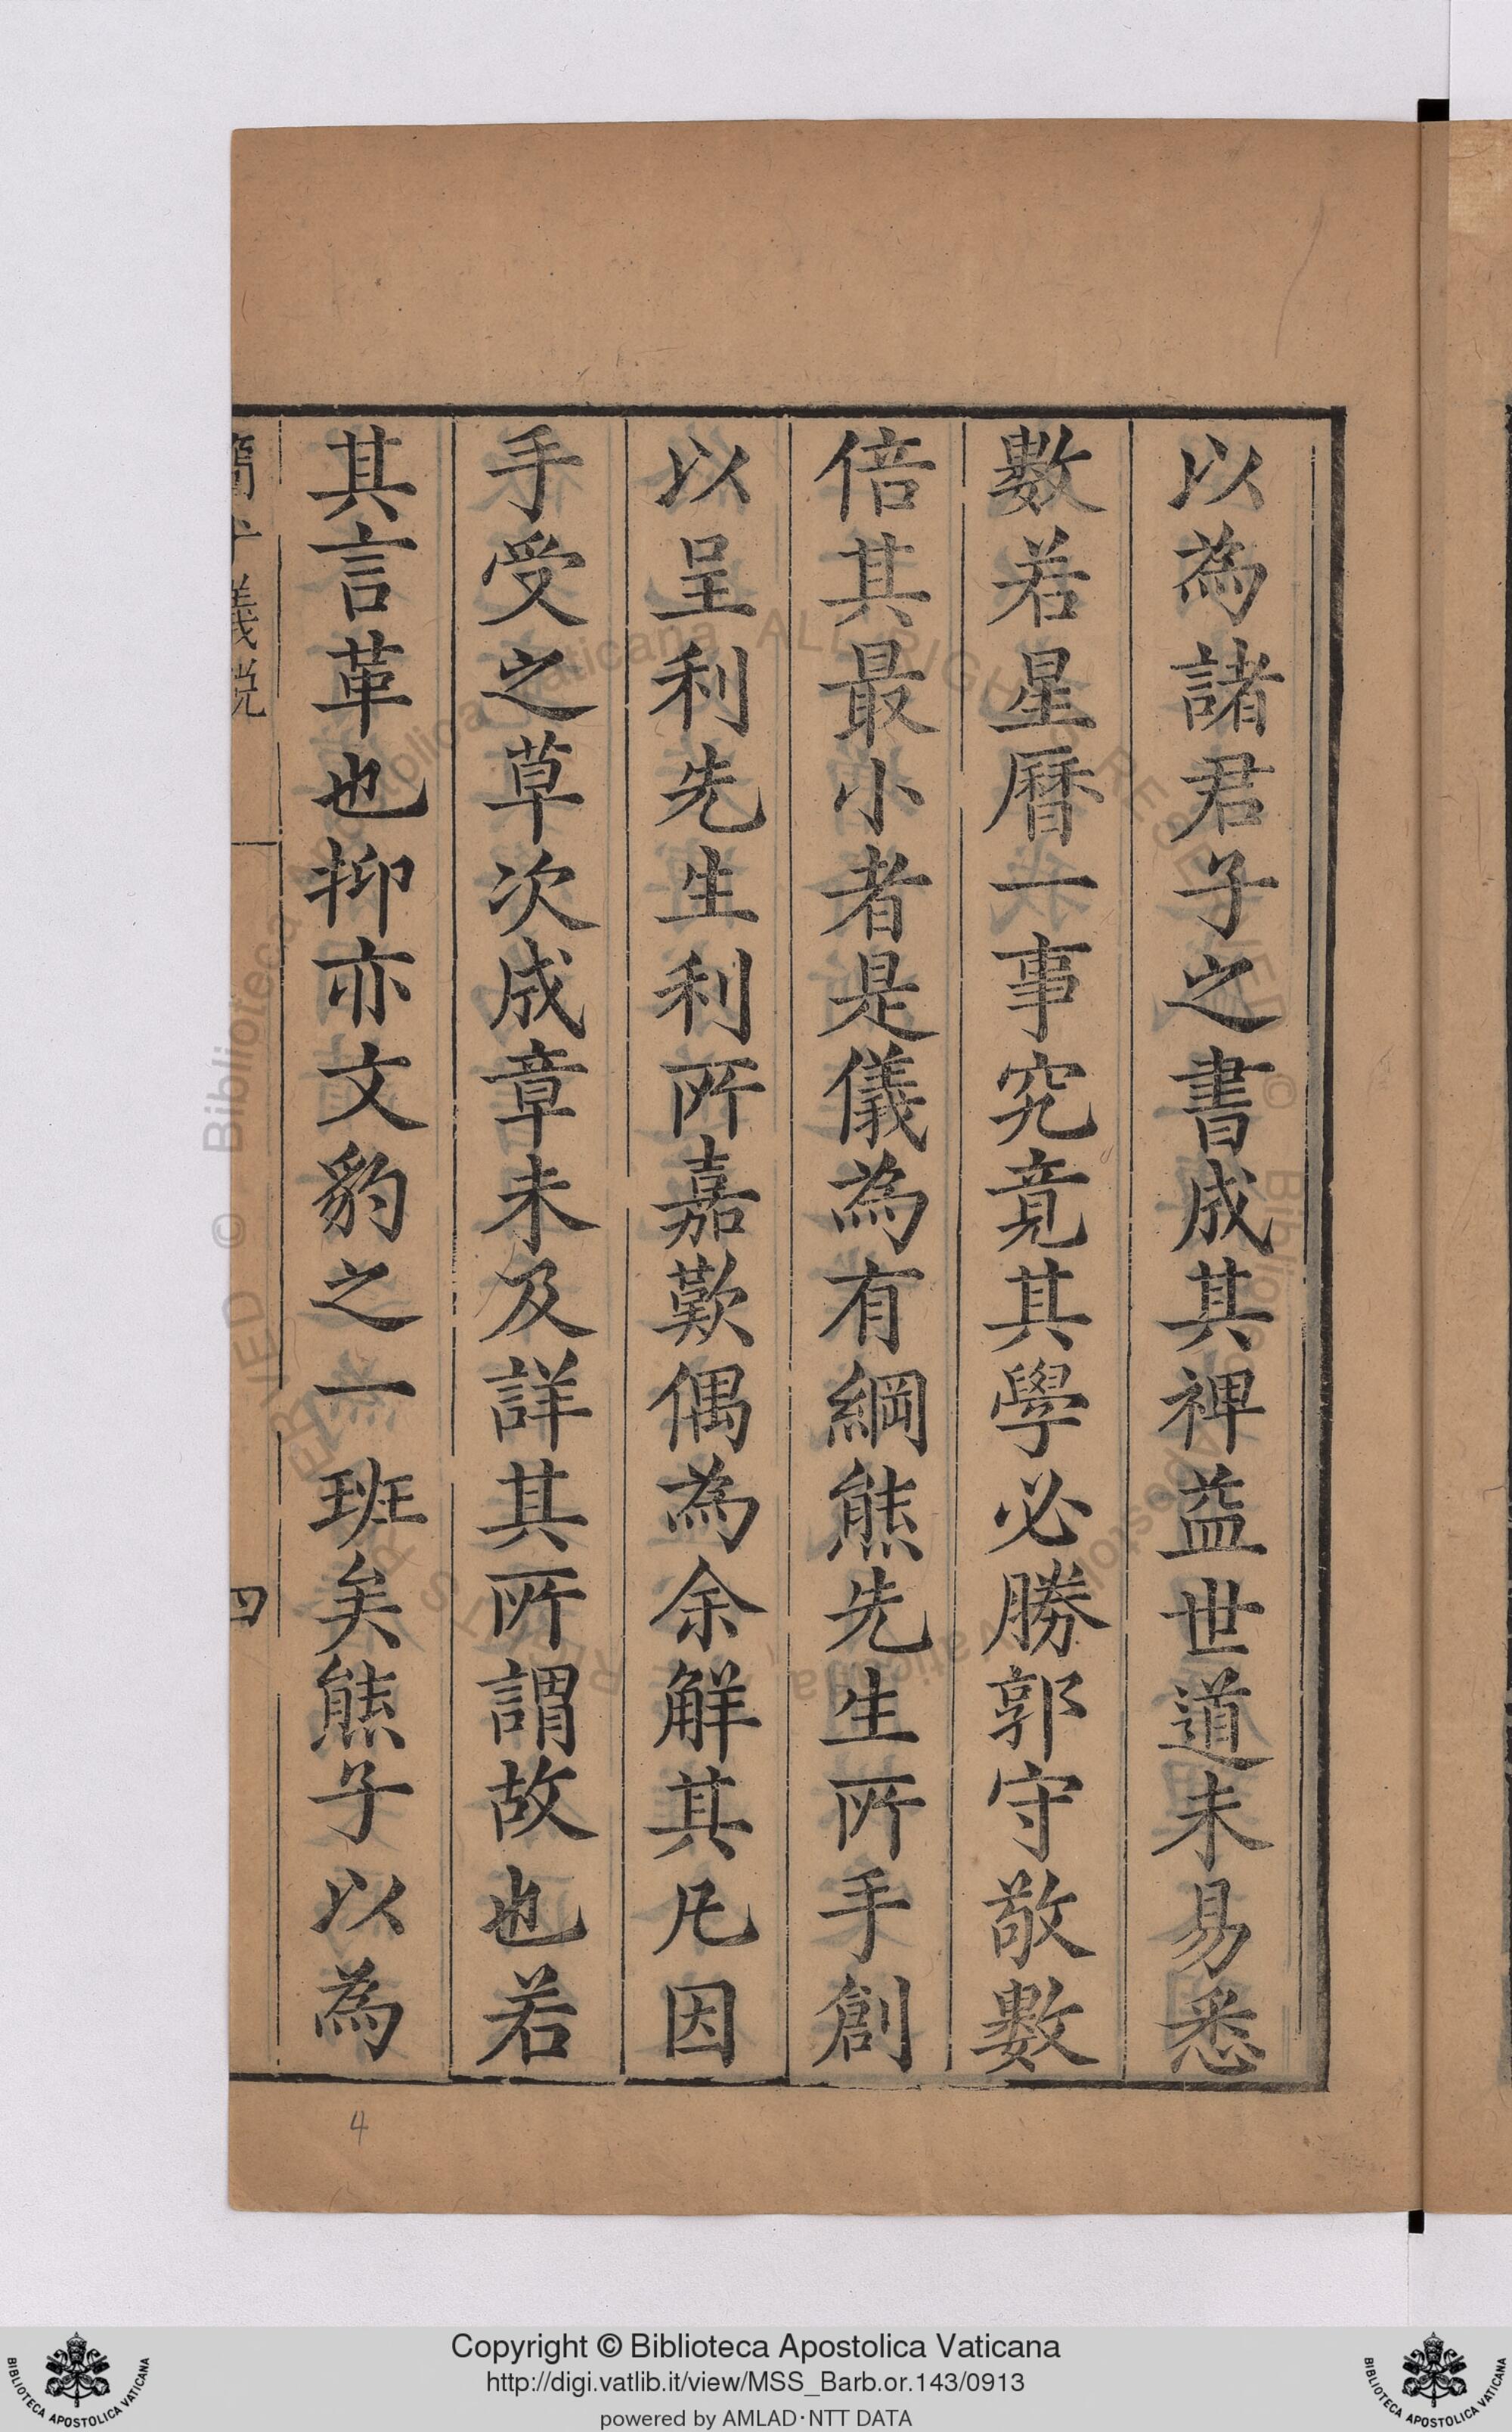 以為諸君子之書成其裨益世道未易悉
數若星曆一事究竟其學必勝郭守敬數
倍其最小者是儀為有綱熊先生所手創
以呈利先生利所嘉歎偶為余解其凡因
手受之草次成章未及詳其所謂故也若
其言革也抑亦文豹之一班矣熊子以為
簡平儀說
四
4
Copyright © Biblioteca Apostolica Vaticana
http://digi.vatlib.it/view/MSS_Barb.or.143/0913
powered by AMLAD·NTT DATA
BIBLIOTECA APOSTOLICA VATICANA
BIBLIOTECA APOSTOLICA VATICANA